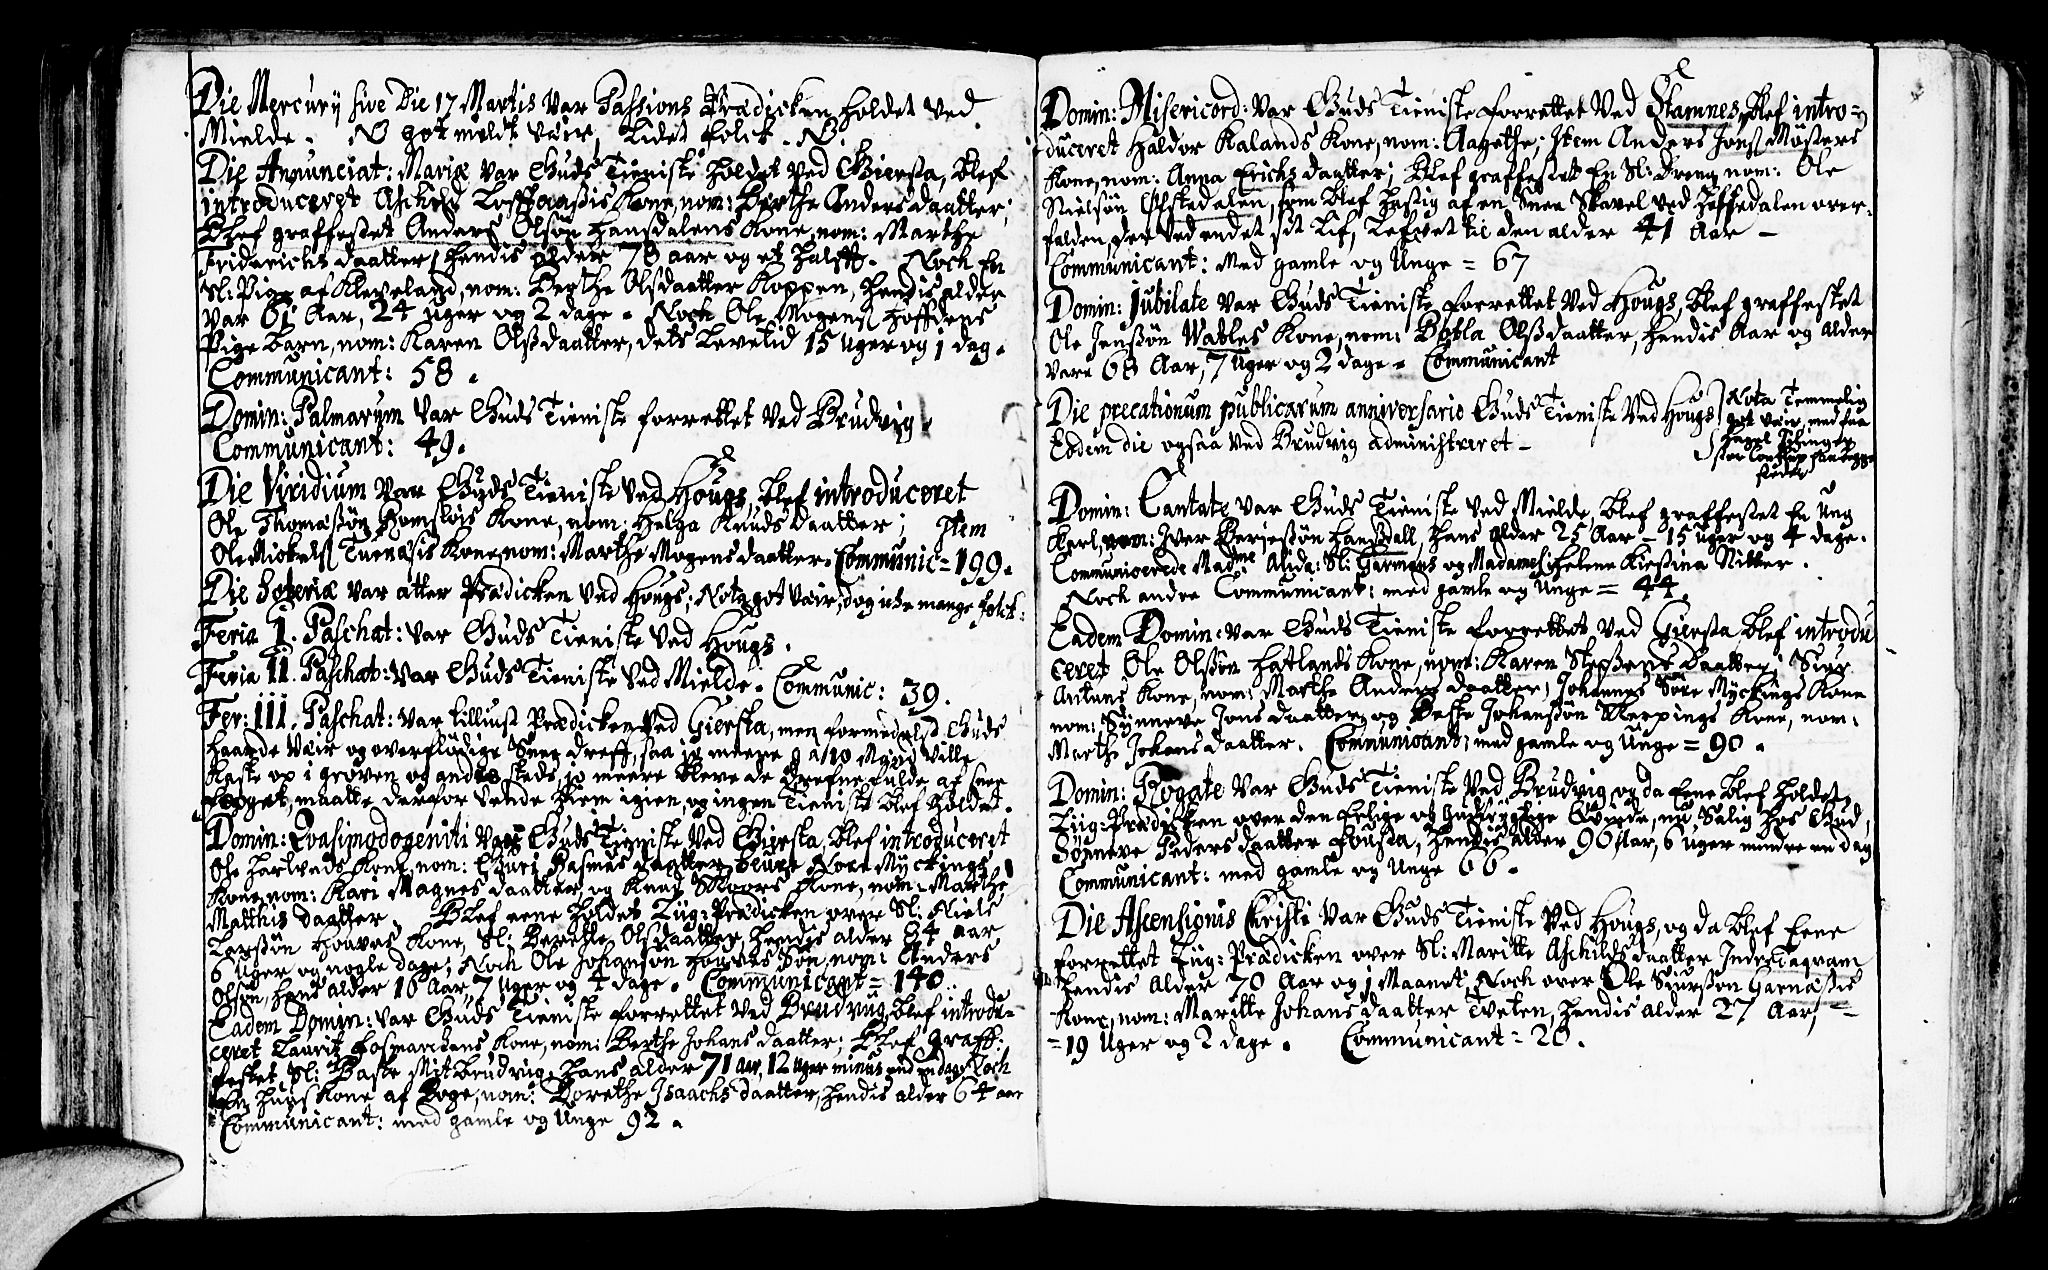 Die Mercurij sive Die 17 Martis var Passions Prædicken holdet ved
Mielde. N got maadt Vair, Lidet folck. N.
Die Annunciat: Mariæ var Guds Tieniste holdet ved Giersta, blef
introduceret Aschild Kone, nom: Berthe Anders daatter;
Blef graffestet Anders Olsøn Hansdalens Kone, nom: Marthe
Friderichs daatter, hendis alder 78 aar og et halft. Noch En
Sl: Pige af Kleveland, nom: Berthe Olsdaatter Koppen, hendis alder
var 61 Aar, 24 uger og 2 dage. Noch Ole Mogens
Pige barn, nom: Karen Olsdaatter, dets Levetid 15 uger og 1 dag.
Communicant: 58.
Domin: Palmarum var Guds Tieniste forrettet ved Brudvig.
Communicant: 49.
Die Viridium var Guds Tieniste ved Hougs, blef introduceret
Ole Thomasøn Kone, nom: Helga Knuds daatter; Item
Ole Mickels Kone, nom: Marthe Mogens daatter. Communic = 199.
Die Soteriæ var atter Prædicken ved Hougs; Nota got Vair, dog icke mange folck:
Feria I. Paschat: var Guds Tieniste ved Hougs.
Feria II. Paschat: var Guds Tieniste ved Mielde. Communic: 39.
Fer: III. Paschat: var tillyust Prædicken ved Giersta, men formedelst Guds
haarde Vair og overflødige Snee dreff, saa jo meere 9 a 10 Mænd ville
kaste op i grøven og andre steds, jo meere bleve de fulde af snee
igien, maatte derfor vende hiem igien, og ingen Tieniste blef holdet.
Domin: Qvasimodogeniti var Guds Tieniste ved Giersta, blef introduceret
Ole Kone, nom: Guri Rasmus daatter, Nore Myckings
Kone, nom: Kari Magnes daatter, og Knud Skaars Kone, nom: Marthe
Matthis daatter. Blef eene holdet Liig-Prædicken over Sl: Niels
Larsøn Kone, Sl: Berethe Olsdaatter, hendis alder 84 aar
6 uger og nogle dage; Noch Ole Johansøn Søn, nom: Anders
Olsøn, hans alder 16 Aar 7 uger og 4 dage. Communicant = 140.
Eadem Domin: var Guds Tieniste forrettet ved Brudvig, blef introdu-
ceret Lauritz Kone, nom: Berthe Johans daatter; Blef graff-
festet Sl: Baste Mit Brudvig, hans alder 71 aar, 12 uger minus end en dag. Noch
En Huus Kone af Boge, nom: Dorethe Isaachs daatter, hendis alder 64 aar
Communicant: med gamle og Unge 92.
Domin: Misericord: var Guds Tieniste forrettet ved Stamnes, blef intro-
duceret Haldor Kalands Kone, nom: Aagethe; Item Anders Jons Møsters
Kone, nom: Anna Erichs daatter; blef graffestet En Sl: Dreng nom: Ole
Nielsøn, som blef hastig af en Snee Skavel ved over-
falden, der ved endet sit Lif, Lefvet til den alder 41 Aar —
Communicant: Med gamle og Unge = 67
Domin: Jubilate var Guds Tieniste forrettet ved Hougs, blef graffestet
Ole Jensøn Watles Kone, nom: Botla Olsdaatter, hendis Aar og alder
vare 68 Aar, 7 uger og 2 dage. Communicant
Die precationum publicarum anniversario Guds Tieniste ved Hougs
Eodem die ogsaa ved Brudvig administreret —
Nota Temmelig
got Vair, med faa
stor paa begge
steder
Domin: Cantate var Guds Tieniste ved Mielde, blef graffestet En Ung
Karl, nom: Iver hans alder 25 Aar — 15 uger og 4 dage.
Communicerede Madme Alida Sl: Garmans og Madames Helena Kirstina Ritter.
Noch andre Communicant: med gamle og Unge = 44.
Eadem Domin: var Guds Tieniste forrettet ved Giersta, blef introdu
ceret Ole Olsøn Hatlands Kone, nom: Karen Steffens daatter; Siur
Kone, nom: Marthe Anders daatter, Johannes Søre Myckings Kone
nom: Synneve Jons daatter og Johansøn Kone, nom:
Marthe Johans daatter. Communicant; med gamle og Unge = 90.
Domin: Rogate var Guds Tieniste ved Brudvig og da Eene blef holdet
Liig-Prædicken over den Erlige og Gudfrygtige Qvinde, nu Salig hos Gud,
Synneve Peders daatter, hendis alder 90 Aar, 6 uger mindre en dag
Communicant: med gamle og Unge 66.
Die Ascensionis Christi var Guds Tieniste ved Hougs, og da blef Eene
forrettet Liig-Prædicken over Sl: Maritte Aschilds daatter
hendis alder 70 Aar og 1 Maanet, Noch over Ole Siursøn Garnæsis
Kone, nom: Maritte Johans daatter Tveten, hendis alder 27 Aar, =
= 19 Uger og 2 dage. Communicant = 20.